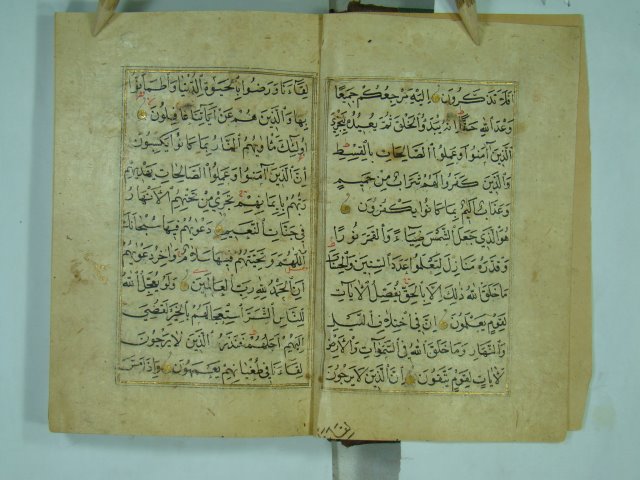 فَلَا تَذَكَّرُونَ اِلَيْهِ مَرْجِعُكُمْ جَمِيعًا
وَعْدَ اللهِ حَقًّا اِنَّهُ يَبْدَؤُ الْخَلْقَ ثُمَّ يُعِيدُهُ لِيَجْزِيَ
الَّذِينَ آمَنُوا وَعَمِلُوا الصَّالِحَاتِ بِالْقِسْطِ
وَالَّذِينَ كَفَرُوا لَهُمْ شَرَابٌ مِنْ حَمِيمٍ
وَعَذَابٌ اَلِيمٌ بِمَا كَانُوا يَكْفُرُونَ
هُوَ الَّذِي جَعَلَ الشَّمْسَ ضِيَاءً وَالْقَمَرَ نُورًا
وَقَدَّرَهُ مَنَازِلَ لِتَعْلَمُوا عَدَدَ السِّنِينَ وَالْحِسَابَ
مَا خَلَقَ اللهُ ذٰلِكَ اِلَّا بِالْحَقِّ يُفَصِّلُ الْآيَاتِ
لِقَوْمٍ يَعْلَمُونَ اِنَّ فِي اخْتِلَافِ الَّيْلِ
وَالنَّهَارِ وَمَا خَلَقَ اللهُ فِي السَّمٰوَاتِ وَالْاَرْضِ
لَآيَاتٍ لِقَوْمٍ يَتَّقُونَ اِنَّ الَّذِينَ لَا يَرْجُونَ
لِقَاءَنَا وَرَضُوا بِالْحَيٰوةِ الدُّنْيَا وَاطْمَاَنُّوا
بِهَا وَالَّذِينَ هُمْ عَنْ آيَاتِنَا غَافِلُونَ
اُولٰئِكَ مَاْوٰيهُمُ النَّارُ بِمَا كَانُوا يَكْسِبُونَ
اِنَّ الَّذِينَ آمَنُوا وَعَمِلُوا الصَّالِحَاتِ يَهْدِيهِمْ
رَبُّهُمْ بِاِيمَانِهِمْ تَجْرِي مِنْ تَحْتِهِمُ الْاَنْهَارُ
فِي جَنَّاتِ النَّعِيمِ دَعْوٰيهُمْ فِيهَا سُبْحَانَكَ
اللّٰهُمَّ وَتَحِيَّتُهُمْ فِيهَا سَلَامٌ وَآخِرُ دَعْوٰيهُمْ
اَنِ الْحَمْدُ لِلّٰهِ رَبِّ الْعَالَمِينَ وَلَوْ يُعَجِّلُ اللهُ
لِلنَّاسِ الشَّرَّ اسْتِعْجَالَهُمْ بِالْخَيْرِ لَقُضِيَ
اِلَيْهِمْ اَجَلُهُمْ فَنَذَرُ الَّذِينَ لَا يَرْجُونَ
لِقَاءَنَا فِي طُغْيَانِهِمْ يَعْمَهُونَ وَاِذَا مَسَّ